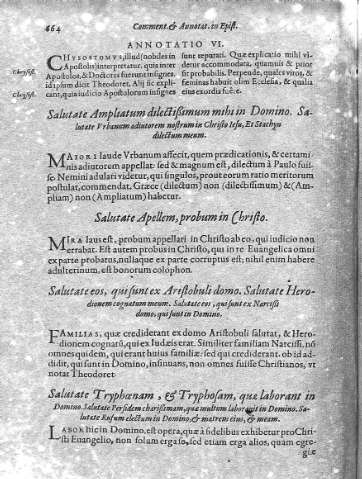 664 Comment. & Annotat. in Epist.
ANNOTATIO VI.
CHrysostomus, illud (nobiles in
Apostolis) interpretatur, quis inter
Apostolos, & Doctores fuerunt insignes.
idipsum dicit Theodoret. Alij sic expli-
cant, quia iudicio Apostolorum insignes
sunt reputati. Quæ explicatio mihi vi-
detur accommodata, quamuis & prior
sit probabilis. Perpende, quales viros, &
feminas habuit olim Ecclesia, & qualia
eius exordia fuere.
Chrysost.
Chrysost.
Salutate Ampliatum dilectissimum mihi in Domino. Sa-
lutate Vrbanum adiutorem nostrum in Christo Iesu, Et Stachyn
dilectum meum.
MAIORI laude Vrbanum affecit, quem prædicationis, & certami-
nis adiutorem appellat: sed & magnum est, dilectum à Paulo fuis-
se Nemini adulari videtur, qui singulos, prout eorum ratio meritorum
postulat, commendat. Græce (dilectum) non (dilectissimum) & (Am-
pliam) non (Ampliatum) habetur.
Salutate Apellem, probum in Christo.
MIRA laus est, probum appellari in Christo ab eo, qui iudicio non
errabat. Est autem probus in Christo, qui in re Euangelica omni
ex parte probatus, nullaque ex parte corruptus est; nihil enim habere
adulterinum, est bonorum colophon.
Salutate eos, qui sunt ex Aristobuli domo. Salutate Hero-
dionem cognatum meum. Salutate eos, qui sunt ex Narcissi
domo, qui sunt in Domino.
FAMILIAS, quæ crediderant ex domo Aristobuli salutat, & Hero-
dionem cognatũ, qui ex Iudæis erat. Similiter familiam Narcissi, nõ
omnes quidem, qui erant huius familiæ: sed qui crediderant. ob id ad-
didit, qui sunt in Domino, insinuans, non omnes fuisse Christianos, vt
notat Theodoret
Salutate Tryphænam, & Tryphosam, quæ laborant in
Domino. Salutate Persidem charissimam, quæ multum laborauit in Domino. Sa-
lutate Rufum electum in Domino, & matrem eius, & meam.
LABOR hic in Domino, est opera, quæ à fidelibus exhibetur pro Chri-
sti Euangelio, non solum erga se, sed etiam erga alios, quam egre-
giæ